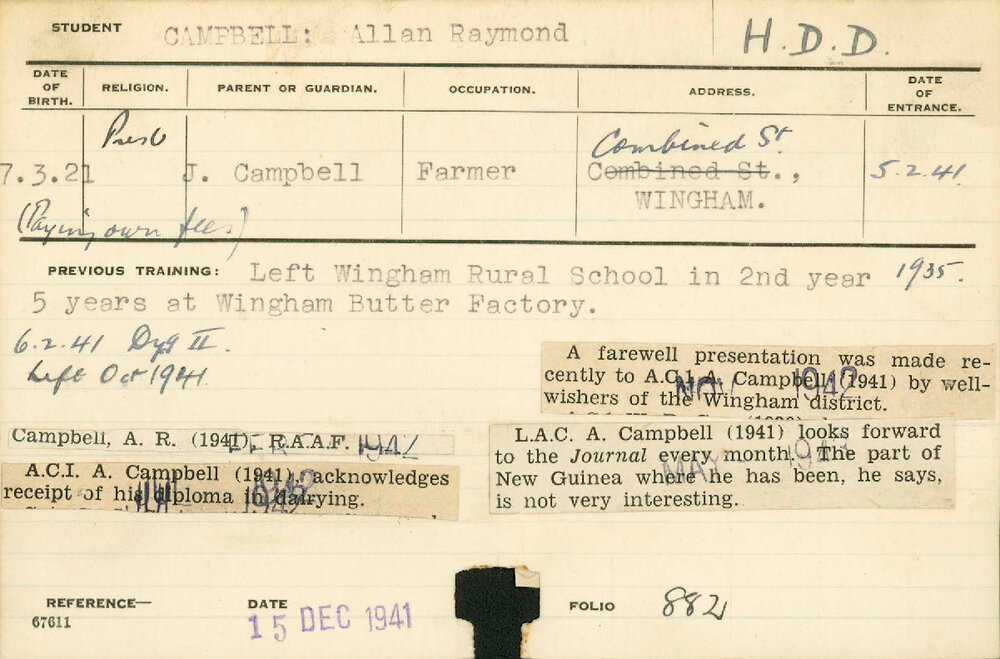 STUDENT CAMPBELL: Allan Raymond H.D.D.
DATE OF BIRTH. RELIGION. PARENT OR GUARDIAN. OCCUPATION. ADDRESS. DATE OF ENTRANCE.
Presb Combined St.
7.3.21 J. Campbell Farmer Combined St., 5.2.41.
WINGHAM.
(Paying own fees)
PREVIOUS TRAINING: Left Wingham Rural School in 2nd year 1935.
5 years at Wingham Butter Factory.
6.2.41 Dyg II.
Left Oct 1941.
A farewell presentation was made re-
cently to A.C.1 A. Campbell (1941) by well-
wishers of the Wingham district.
NOV 1942
Campbell, A. R. (1941), R.A.A.F. 1942
L.A.C. A. Campbell (1941) looks forward
to the Journal every month. The part of
New Guinea where he has been, he says,
is not very interesting.
MAY
A.C.I. A. Campbell (1941), acknowledges
receipt of his diploma in dairying.
1942
REFERENCE— DATE FOLIO 882
67611 15 DEC 1941